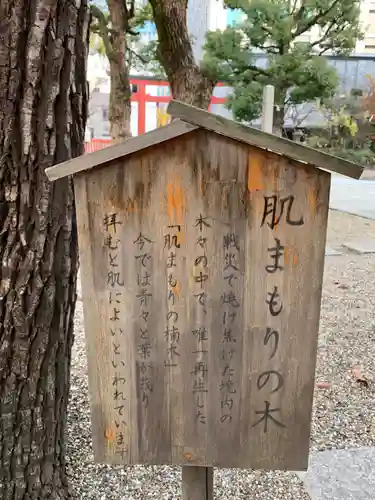 肌まもりの木
戦災で焼け焦げた境内の
木々の中で、唯一再生した
「肌まもり楠木」
今では青々と葉が茂り
拝むと肌によいといわれています